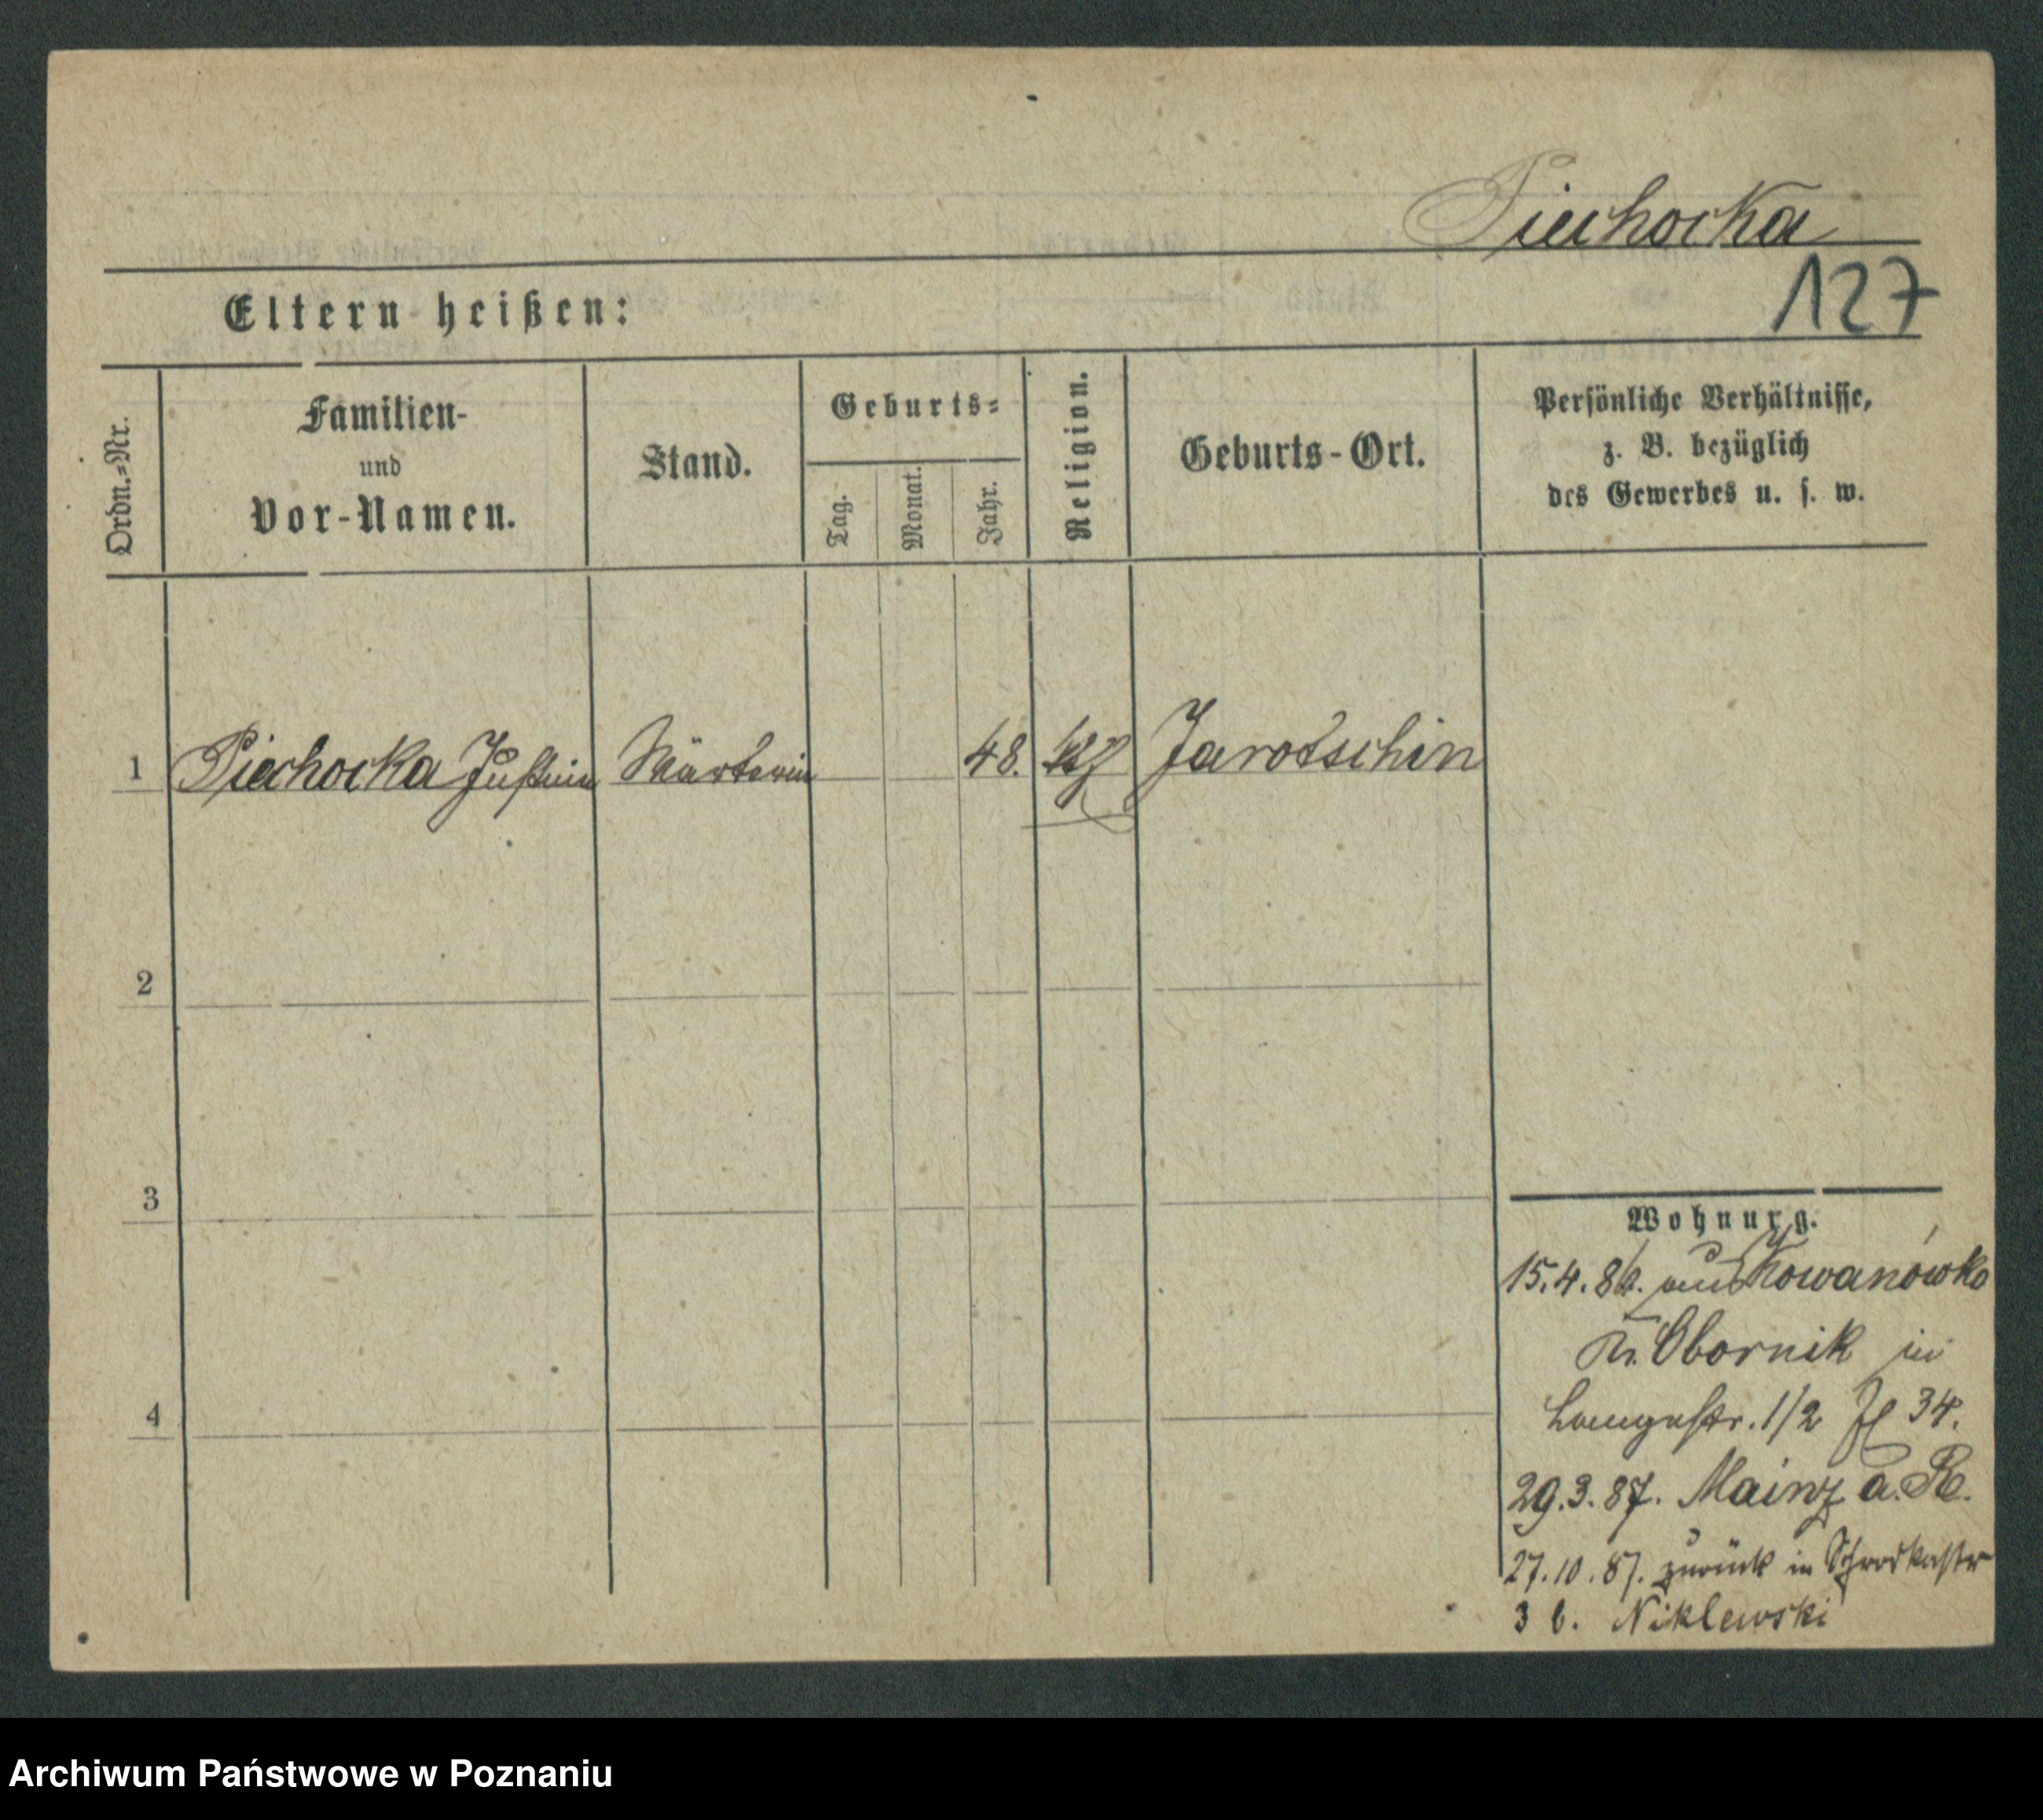 Piechocka
127
Eltern heißen:
Ordn.=Nr.
Familien-
und
Vor-Namen.
Stand.
Geburts=
Tag.
Monat.
Jahr.
Religion.
Geburts-Ort.
Persönliche Verhältnisse,
z. B. bezüglich
des Gewerbes u. s. w.
1 Piechocka Justine Wärterin 48. Jarotschin
2
3
4
Wohnung.
15.4.86. aus Kowanówko
Kr. Obornik in
Langestr. 1/2 34.
29.3.87. Mainz a. R.
27.10.87. zurück in
3 b. Niklewski
Archiwum Państwowe w Poznaniu